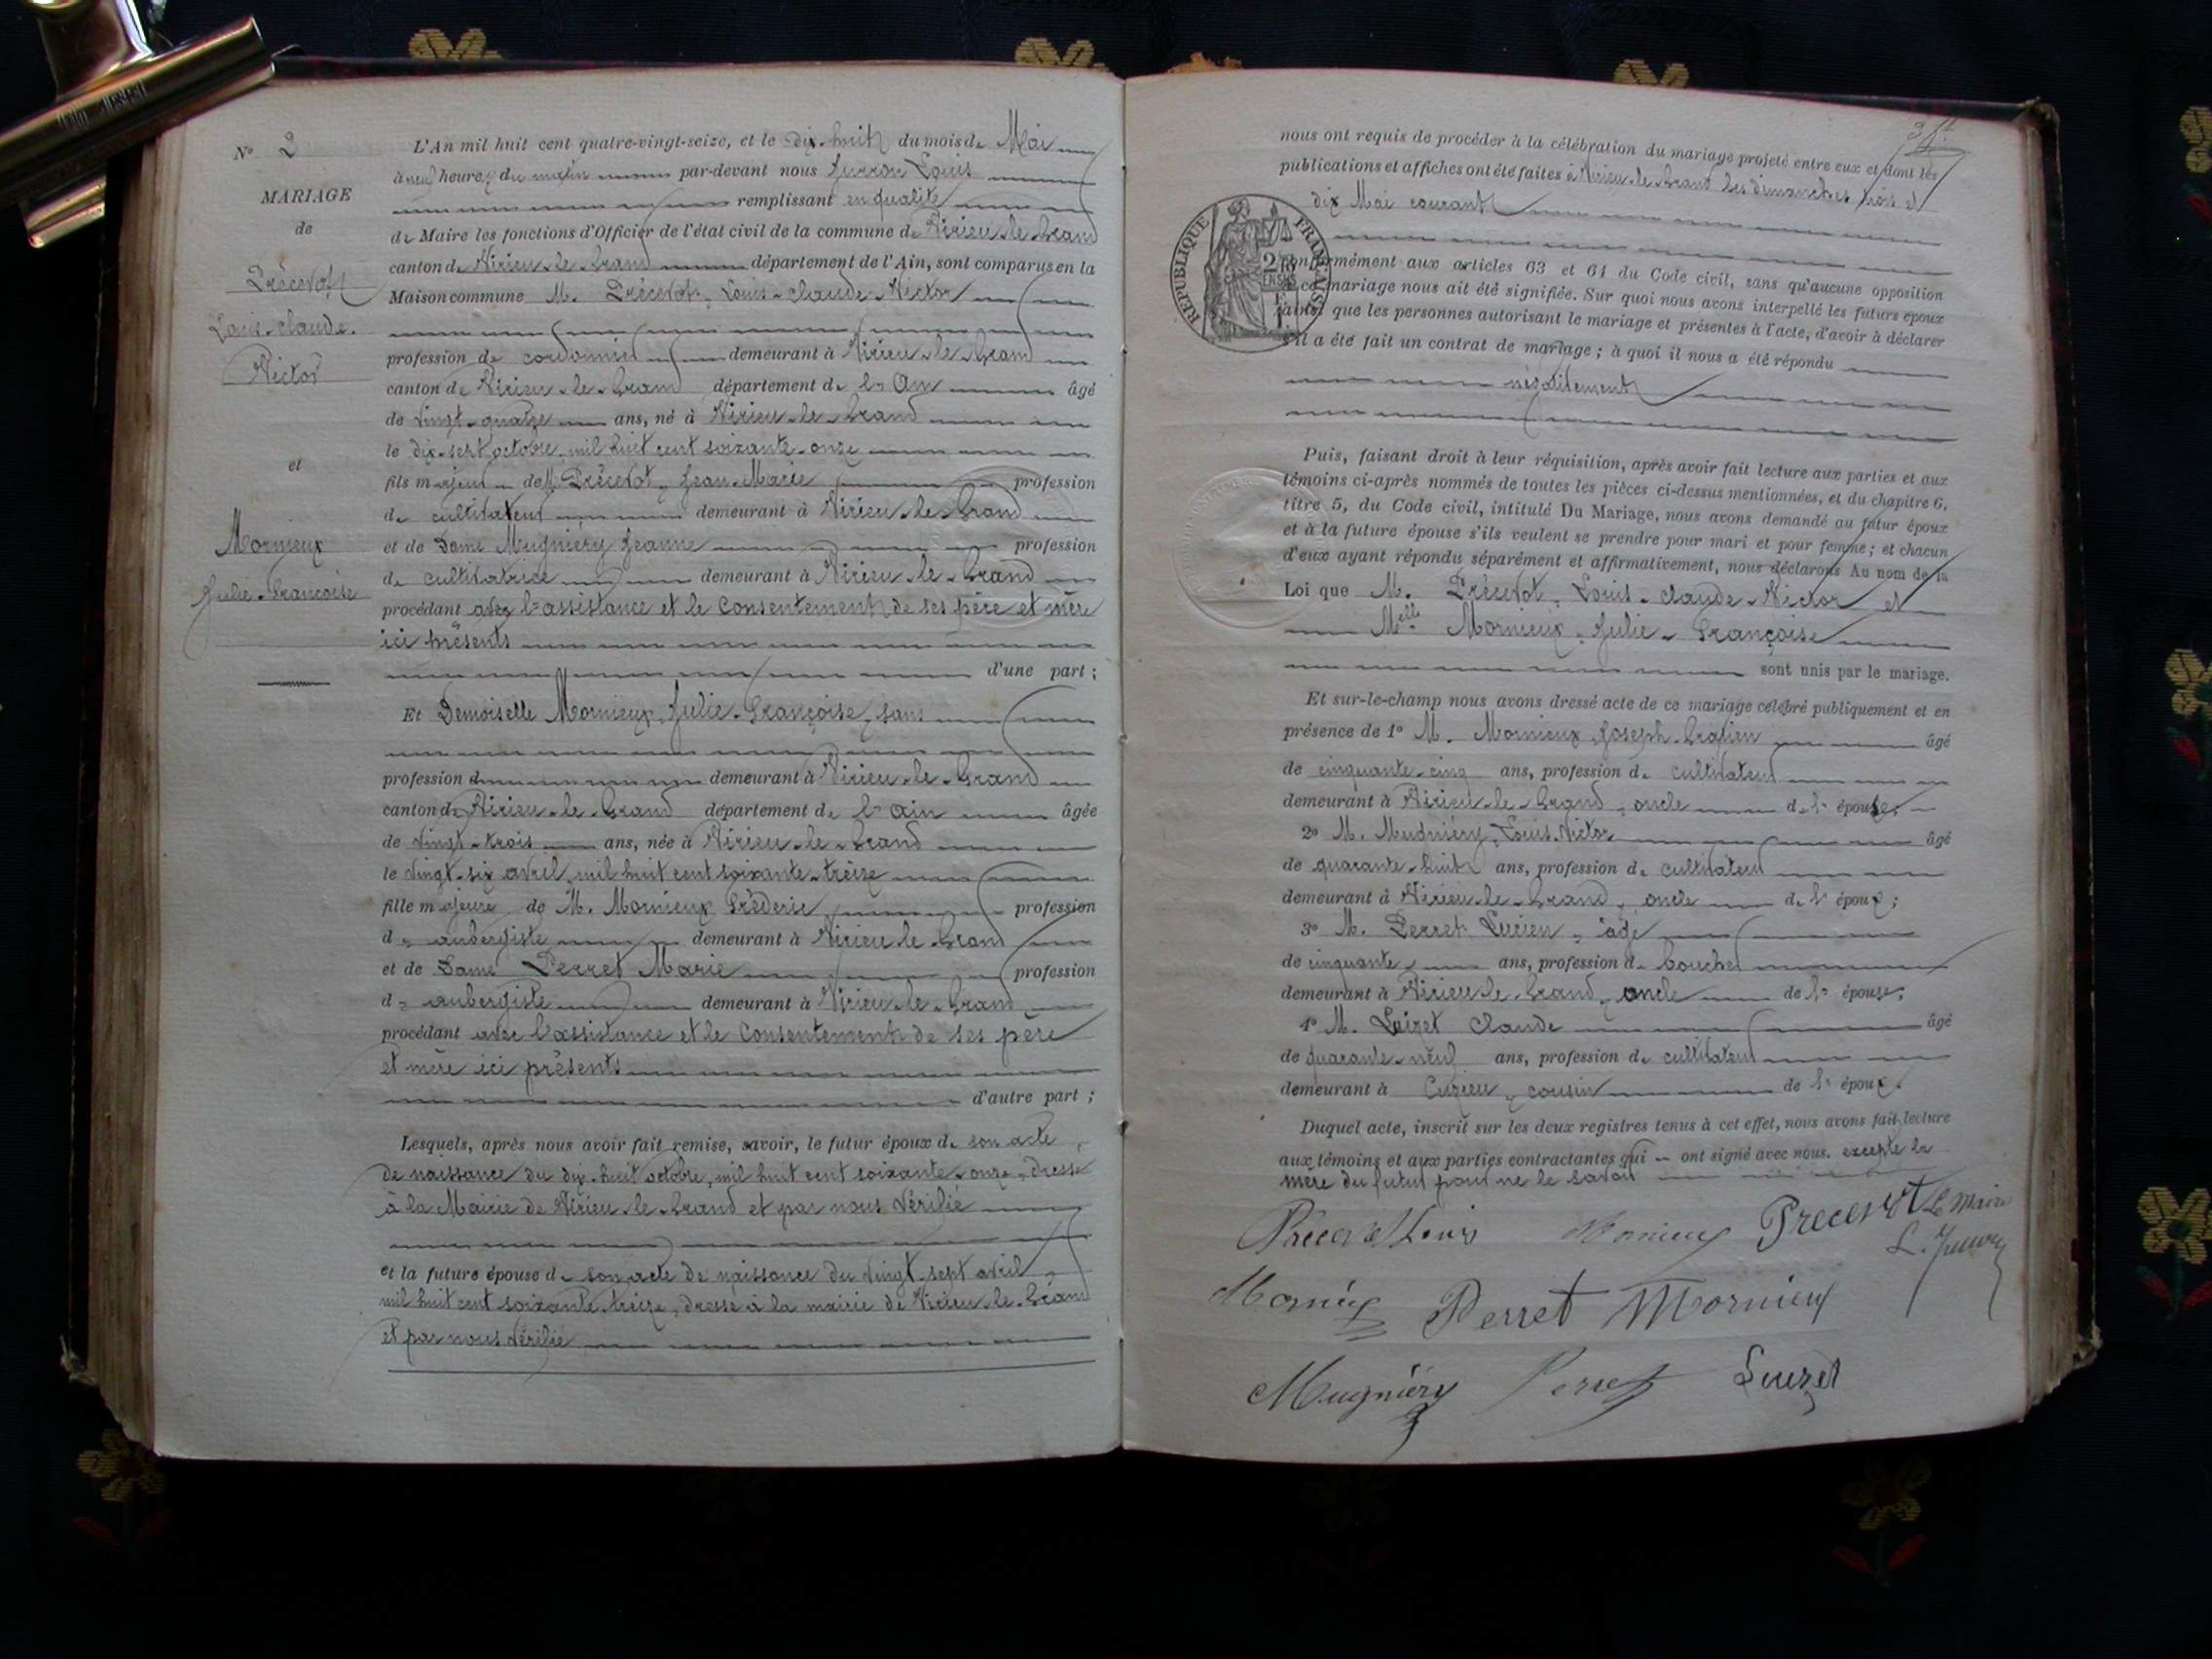 N° 2
MARIAGE
de
Précevot
Louis-Claude-
Victor
et
Mornieux
Julie-Françoise
L'An mil huit cent quatre-vingt-seize, et le dix-huit du mois de Mai
à neuf heures du matin par-devant nous Juvron Louis
remplissant en qualité
de Maire les fonctions d'Officier de l'état civil de la commune de Virieu-le-Grand
canton de Virieu-le-Grand département de l'Ain, sont comparus en la
Maison commune M. Précevot, Louis-Claude-Victor
profession de cordonnier demeurant à Virieu-le-Grand
canton de Virieu-le-Grand département de l'Ain âgé
de vingt-quatre ans, né à Virieu-le-Grand
le dix-sept octobre, mil huit cent soixante-onze
fils majeur de M. Précevot, Jean-Marie profession
de cultivateur demeurant à Virieu-le-Grand
et de Dame Mugniéry Jeanne profession
de cultivatrice demeurant à Virieu-le-Grand
procédant avec l'assistance et le consentement de ses père et mère
ici présents
d'une part ;
Et Demoiselle Mornieux, Julie-Françoise, sans
profession d demeurant à Virieu-le-Grand
canton de Virieu-le-Grand département de l'Ain âgée
de vingt-trois ans, née à Virieu-le-Grand
le vingt-six avril, mil huit cent soixante-treize
fille majeure de M. Mornieux Fréderic profession
d'aubergiste demeurant à Virieu-le-Grand
et de Dame Perret Marie profession
d'aubergiste demeurant à Virieu-le-Grand
procédant avec l'assistance et le consentement de ses père
et mère ici présents
d'autre part ;
Lesquels, après nous avoir fait remise, savoir, le futur époux de son acte
de naissance du dix-huit octobre, mil huit cent soixante-onze, dressé
à la Mairie de Virieu-le-Grand et par nous vérifié
et la future épouse de son acte de naissance du vingt-sept avril,
mil huit cent soixante-treize, dressé à la mairie de Virieu-le-Grand
et par nous vérifié
nous ont requis de procéder à la célébration du mariage projeté entre eux et dont les
publications et affiches ont été faites à Virieu-le-Grand les dimanches trois et
dix Mai courant
RÉPUBLIQUE FRANÇAISE
conformément aux articles 63 et 64 du Code civil, sans qu'aucune opposition
à ce mariage nous ait été signifiée. Sur quoi nous avons interpellé les futurs époux
ainsi que les personnes autorisant le mariage et présentes à l'acte, d'avoir à déclarer
s'il a été fait un contrat de mariage ; à quoi il nous a été répondu
négativement
Puis, faisant droit à leur réquisition, après avoir fait lecture aux parties et aux
témoins ci-après nommés de toutes les pièces ci-dessus mentionnées, et du chapitre 6,
titre 5, du Code civil, intitulé Du Mariage, nous avons demandé au futur époux
et à la future épouse s'ils veulent se prendre pour mari et pour femme ; et chacun
d'eux ayant répondu séparément et affirmativement, nous déclarons Au nom de la
Loi que M. Précevot, Louis-Claude-Victor et
Melle Mornieux, Julie-Françoise
sont unis par le mariage.
Et sur-le-champ nous avons dressé acte de ce mariage célébré publiquement et en
présence de 1° M. Mornieux Joseph-Gratien âgé
de cinquante-cinq ans, profession de cultivateur
demeurant à Virieu-le-Grand, oncle de l'épouse ;
2° M. Mugniéry, Louis-Victor âgé
de quarante-huit ans, profession de cultivateur
demeurant à Virieu-le-Grand, oncle de l'époux ;
3° M. Perret Lucien, âgé
de cinquante ans, profession de boucher
demeurant à Virieu-le-Grand, oncle de l'épouse ;
4° M. Claude âgé
de quarante-neuf ans, profession de cultivateur
demeurant à Cuzieu, cousin de l'époux.
Duquel acte, inscrit sur les deux registres tenus à cet effet, nous avons fait lecture
aux témoins et aux parties contractantes qui ont signé avec nous. excepté la
mère du futur pour ne le savoir
Précevot Louis Mornieux Precevot Le Maire
Mornieux Perret Mornieux
Mugniéry Perret